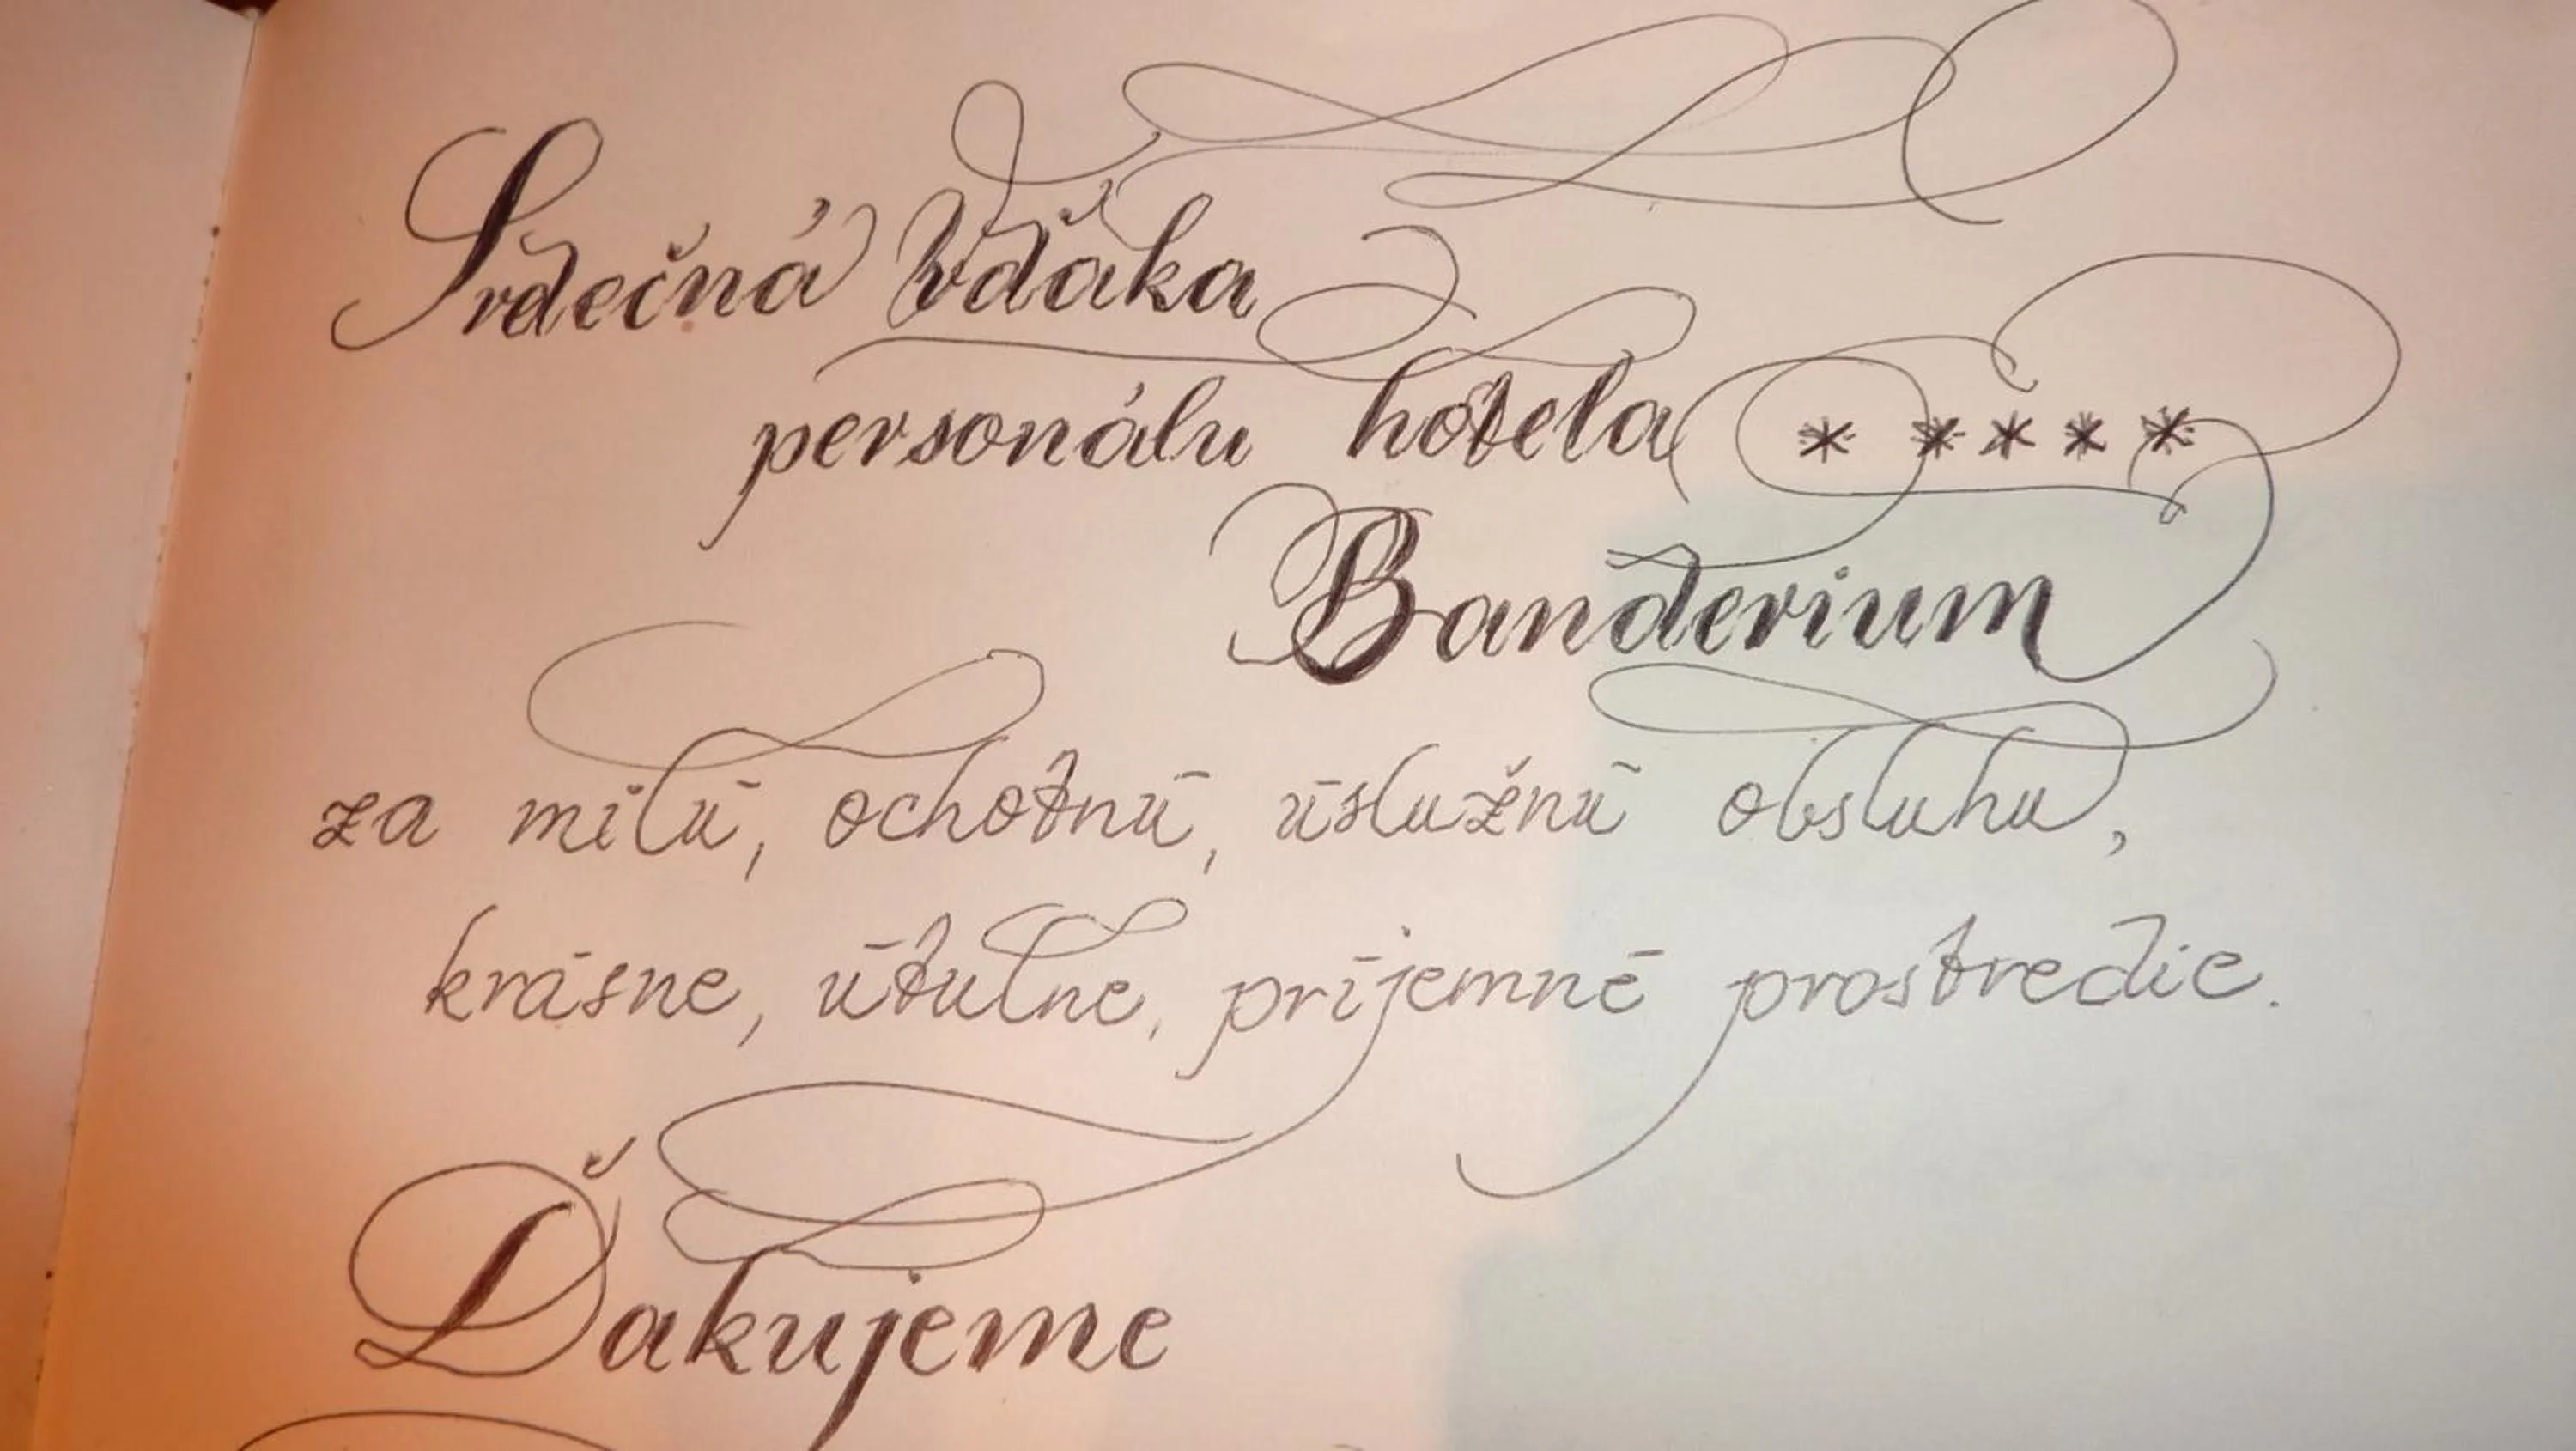 Srdečná Vďaka
personálu hotela * * * * *
Banderium
za milú, ochotnú, úslužnú obsluhu,
krásne, útulne, príjemné prostredie.
Ďakujeme